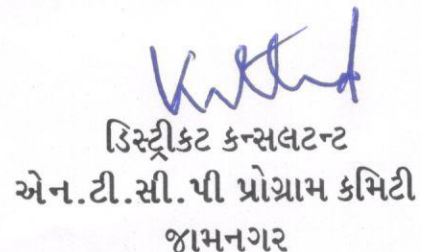 ડિસ્ટ્રીકટ કન્સલટન્ટ
એન.ટી.સી.પી પ્રોગ્રામ કમિટી
જામનગર